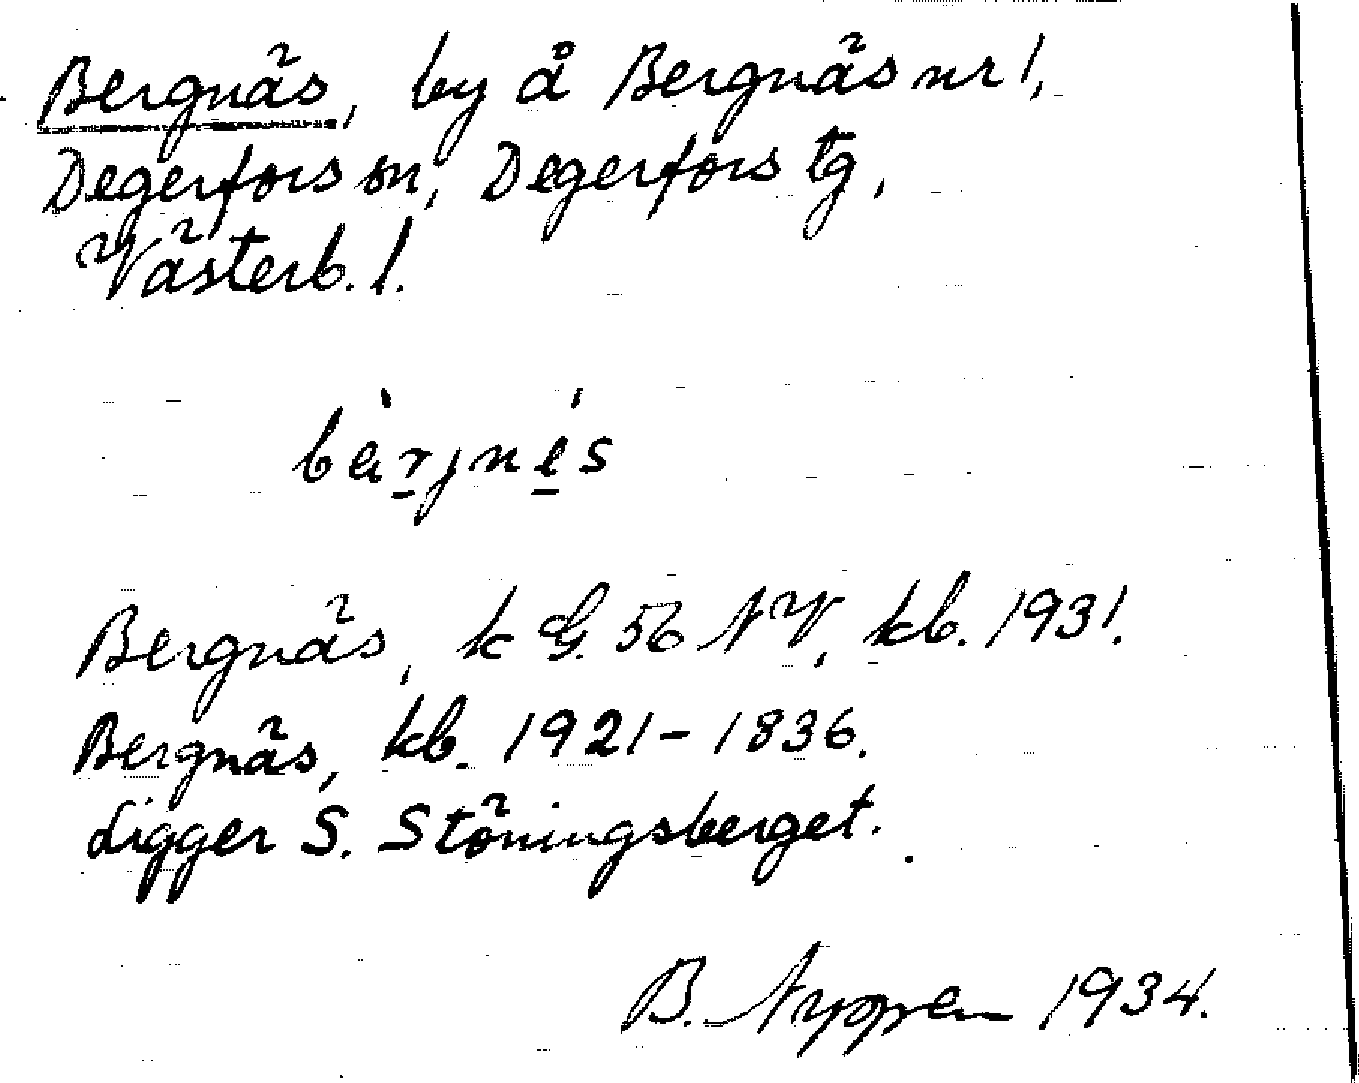 Bergnäs, by å Bergnäs nr 1,
Degerfors sn, Degerfors tg,
Västerb. l.
Bergnäs, k G. 56 NV, kb. 1931.
Bergnäs, kb. 1921-1836.
Ligger S. Stöningsberget.
B. Nyppen 1934.